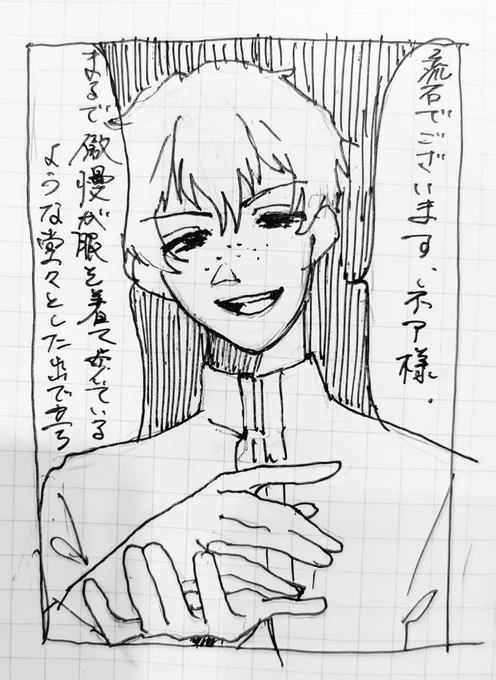 流石でございます、ネア様.
まるで傲慢が服を着て歩いている
ような堂々とした出で立ち